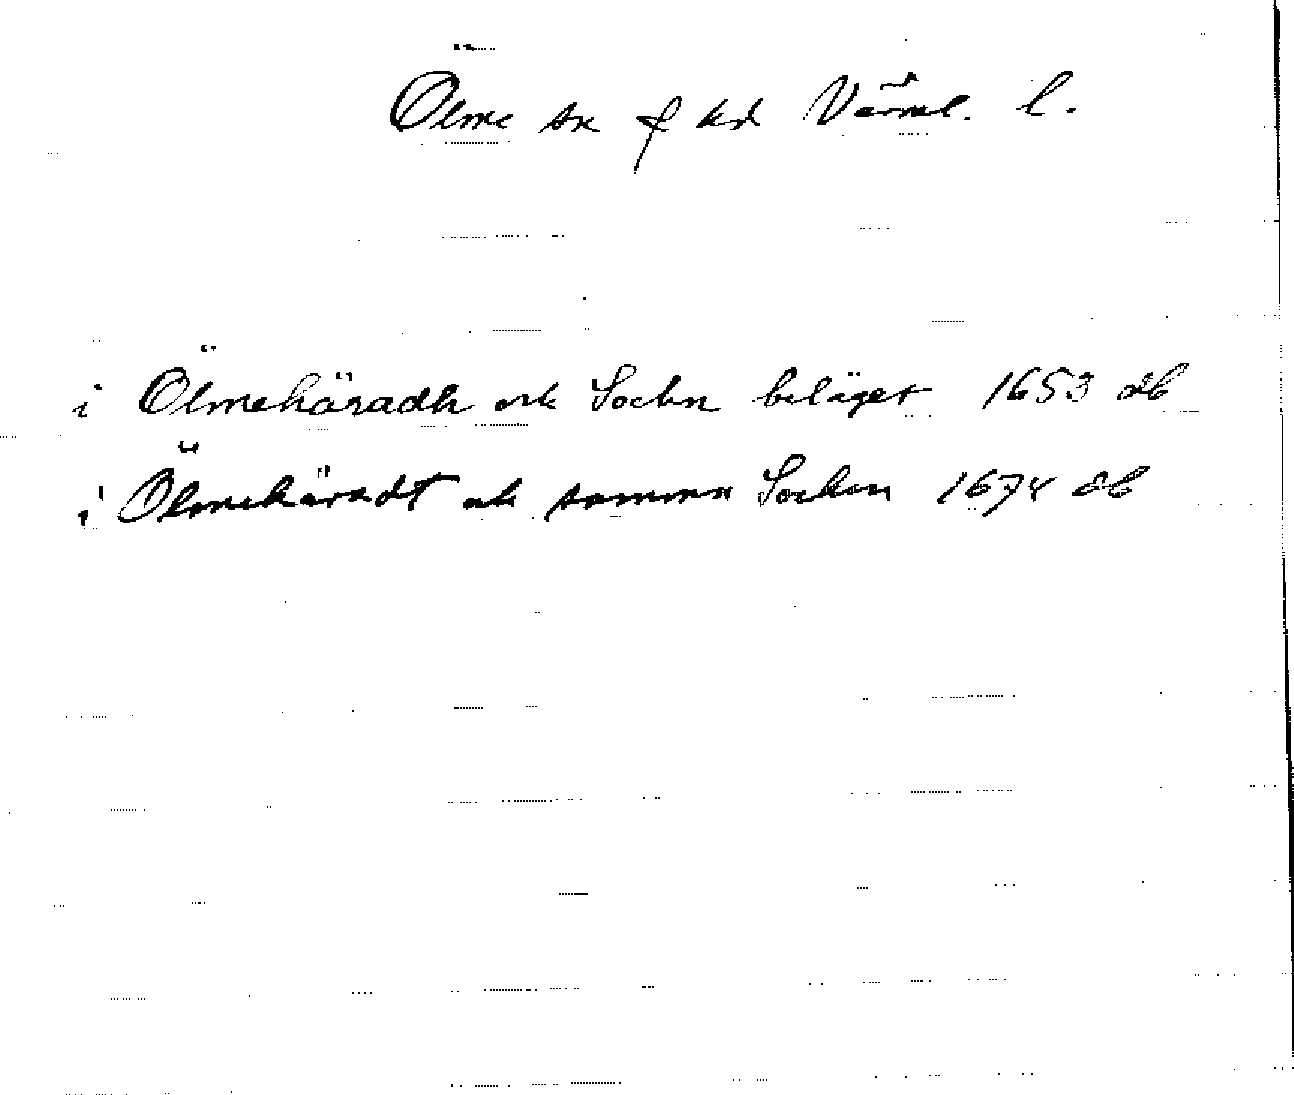 Ölme sn f hd Värml. l.
i Ölmehäradh och Sockn beläget 1653 db
i Ölmehäradt och samma Socken 1674 db